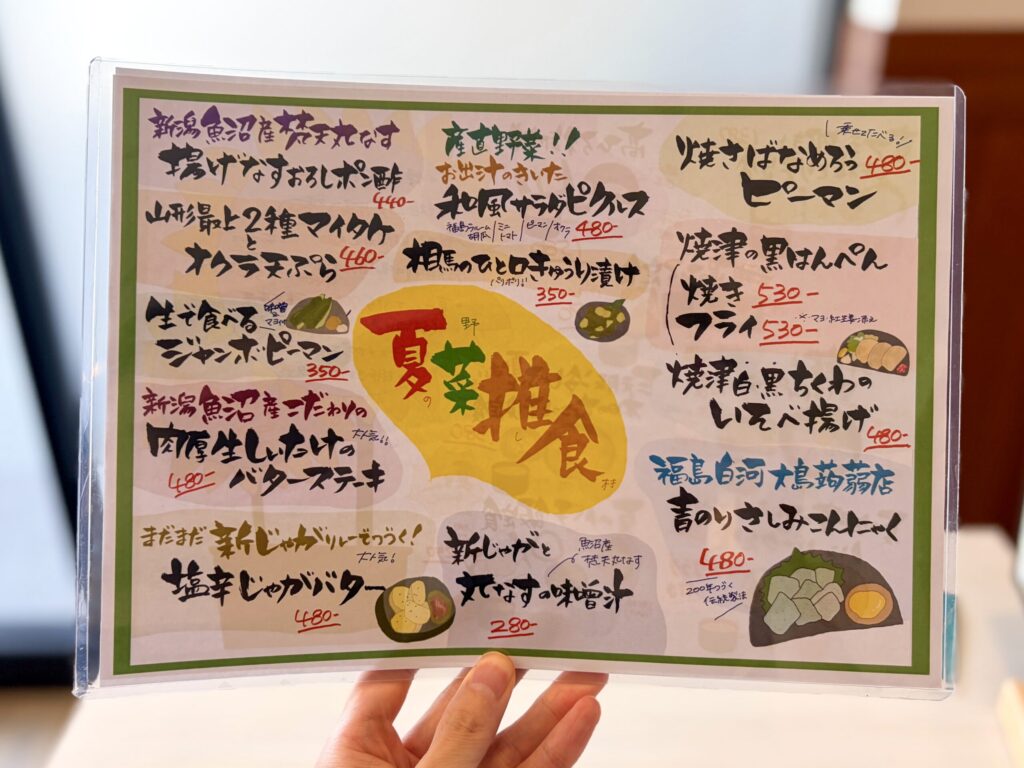 新潟魚沼産梵天丸なす
揚げなすおろしポン酢
440-
山形最上2種マイタケ
と
オクラ天ぷら 460-
生で食べる
味噌
マヨ付
ジャンボピーマン
350-
新潟魚沼産こだわりの
大人気!!
肉厚生しいたけの
バターステーキ
480-
まだまだ新じゃがリレーでつづく!
大人気!
塩辛じゃがバター
480-
産直野菜!!
お出汁のきいた
和風サラダピクルス
ミニ
トマト/ピーマン/オクラ
480-
相馬のひと口きゅうり漬け
パリポリ!
350-
夏の
野菜
推し
食
村
新じゃがと
魚沼産
梵天丸なす
丸なすの味噌汁
280-
乗せてたべる!!
焼さばなめろう
480-
ピーマン
焼津の黒はんぺん
焼き 530-
フライ 530-
※マヨ・紅生姜添え
焼津白・黒ちくわの
いそべ揚げ
480-
福島白河 大島蒟蒻店
青のりさしみこんにゃく
480-
200年つづく
伝統製法